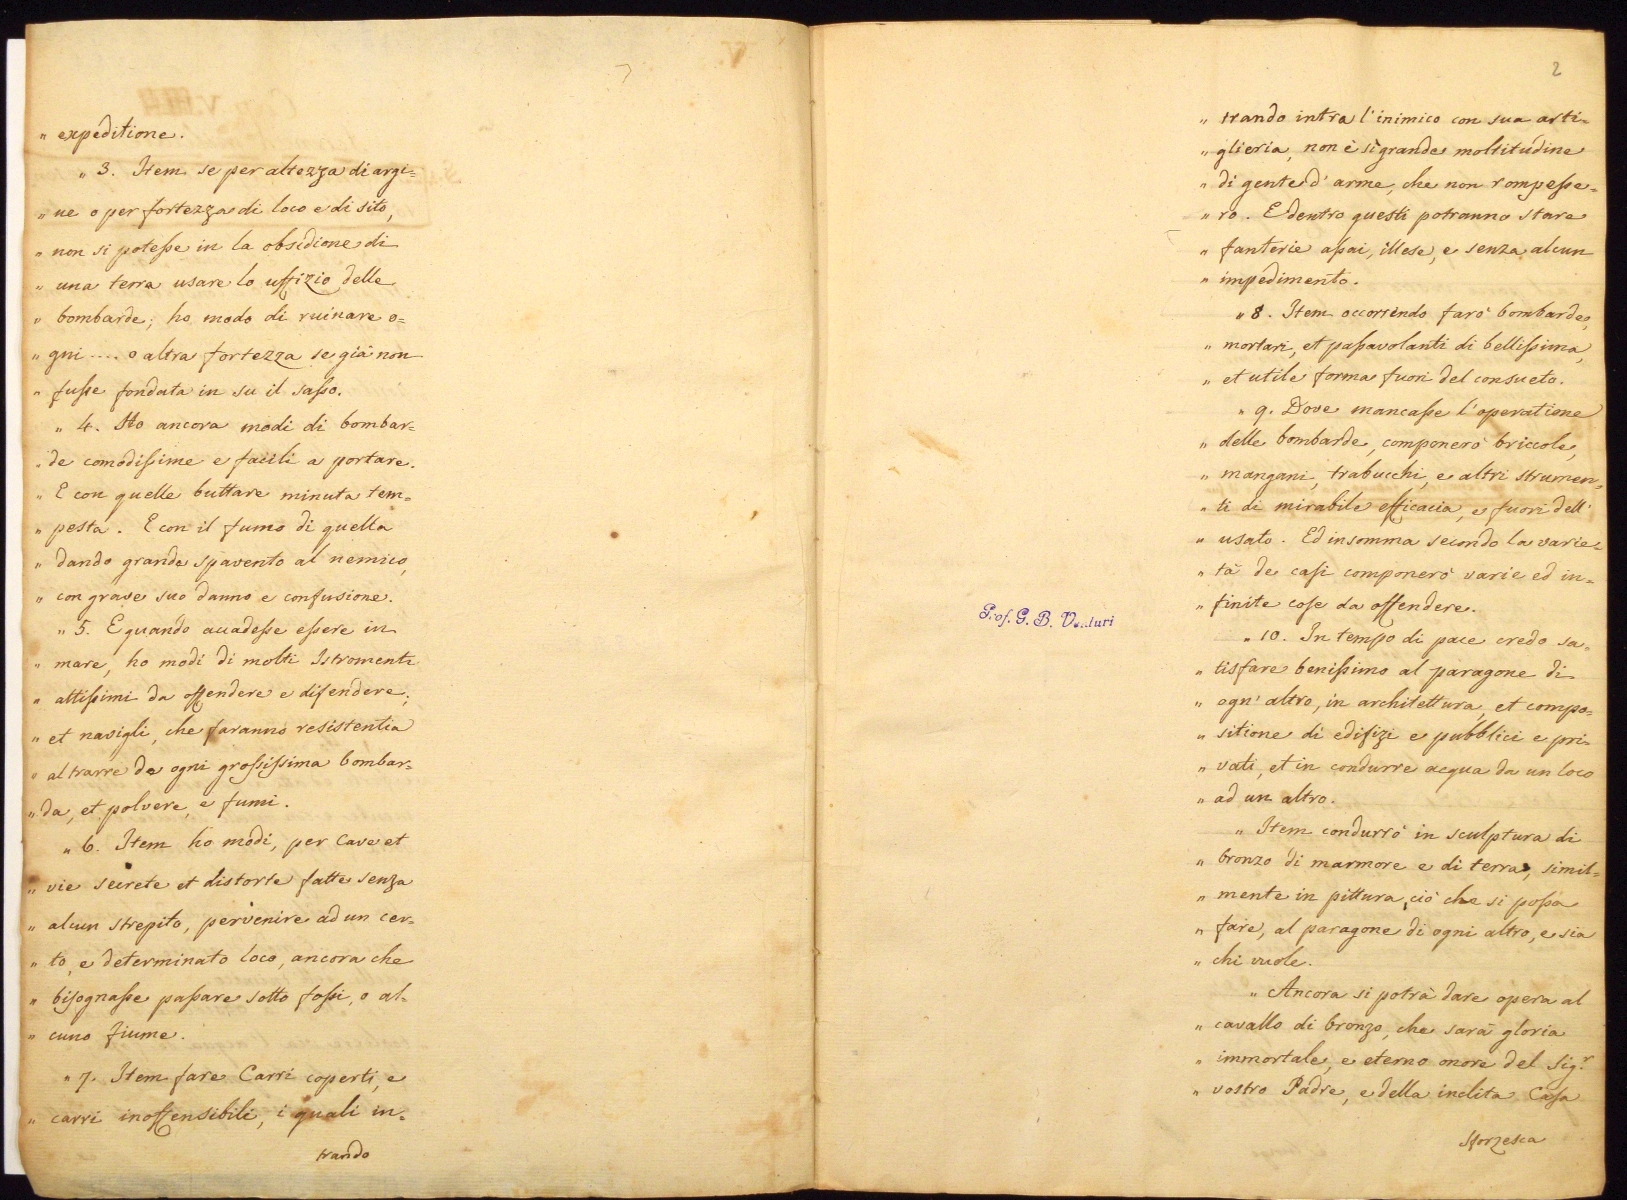 " expeditione.
" 3. Item se per altezza di argi=
" ne o per fortezza di loco e di sito,
" non si potesse in la obsidione di
" una terra usare lo uffizio delle
" bombarde; ho modo di ruinare o=
" gni .... o altra fortezza se già non
" fusse fondata in su il sasso.
" 4. Ho ancora modi di bombar=
" de comodissime e facili a portare.
" E con quelle buttare minuta tem=
" pesta. E con il fumo di quella
" dando grande spavento al nemico,
" con grave suo danno e confusione.
" 5. E quando accadesse essere in
" mare, ho modi di molti Istromenti
" attissimi da offendere e difendere;
" et navigli, che faranno resistentia
" al trarre da ogni grossissima bombar=
" da, et polvere, e fumi.
" 6. Item ho modi, per Cave et
" vie secrete et distorte fatte senza
" alcun strepito, pervenire ad un cer=
" to, e determinato loco, ancora che
" bisognasse passare sotto fossi, o al=
" cuno fiume.
" 7. Item fare Carri coperti, e
" carri inoffensibili, i quali in=
trando
2
" trando intra l'inimico con sua arti=
" glieria, non è sì grande moltitudine
" di gente d'arme, che non rompesse=
" ro. E dentro questi potranno stare
" fanterie assai, illese, e senza alcun
" impedimento.
" 8. Item occorrendo farò bombarde,
" mortari, et passavolanti di bellissima,
" et utile forma fuori del consueto.
" 9. Dove mancasse l'operatione
" delle bombarde, componerò briccole,
" mangani, trabucchi, e altri strumen=
" ti di mirabile efficacia, e fuori dell'
" usato. Ed insomma secondo la varie=
" tà de casi componerò varie ed in=
" finite cose da offendere.
" 10. In tempo di pace credo sa=
" tisfare benissimo al paragone di
" ogn'altro, in architettura, et compo=
" sitione di edifizi e pubblici e pri=
" vati, et in condurre acqua da un loco
" ad un altro.
" Item condurrò in sculptura di
" bronzo di marmore e di terra, simil=
" mente in pittura, ciò che si possa
" fare, al paragone di ogni altro, e sia
" chi vuole.
" Ancora si potrà dare opera al
" cavallo di bronzo, che sarà gloria
" immortale, e eterno onore del Sig.r
" vostro Padre, e della inclita Casa
Sforzesca
Prof. G. B. Venturi